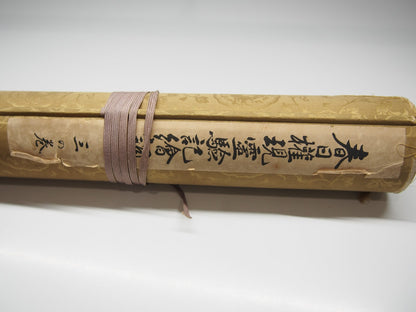 春日權現靈驗記繪
三の巻